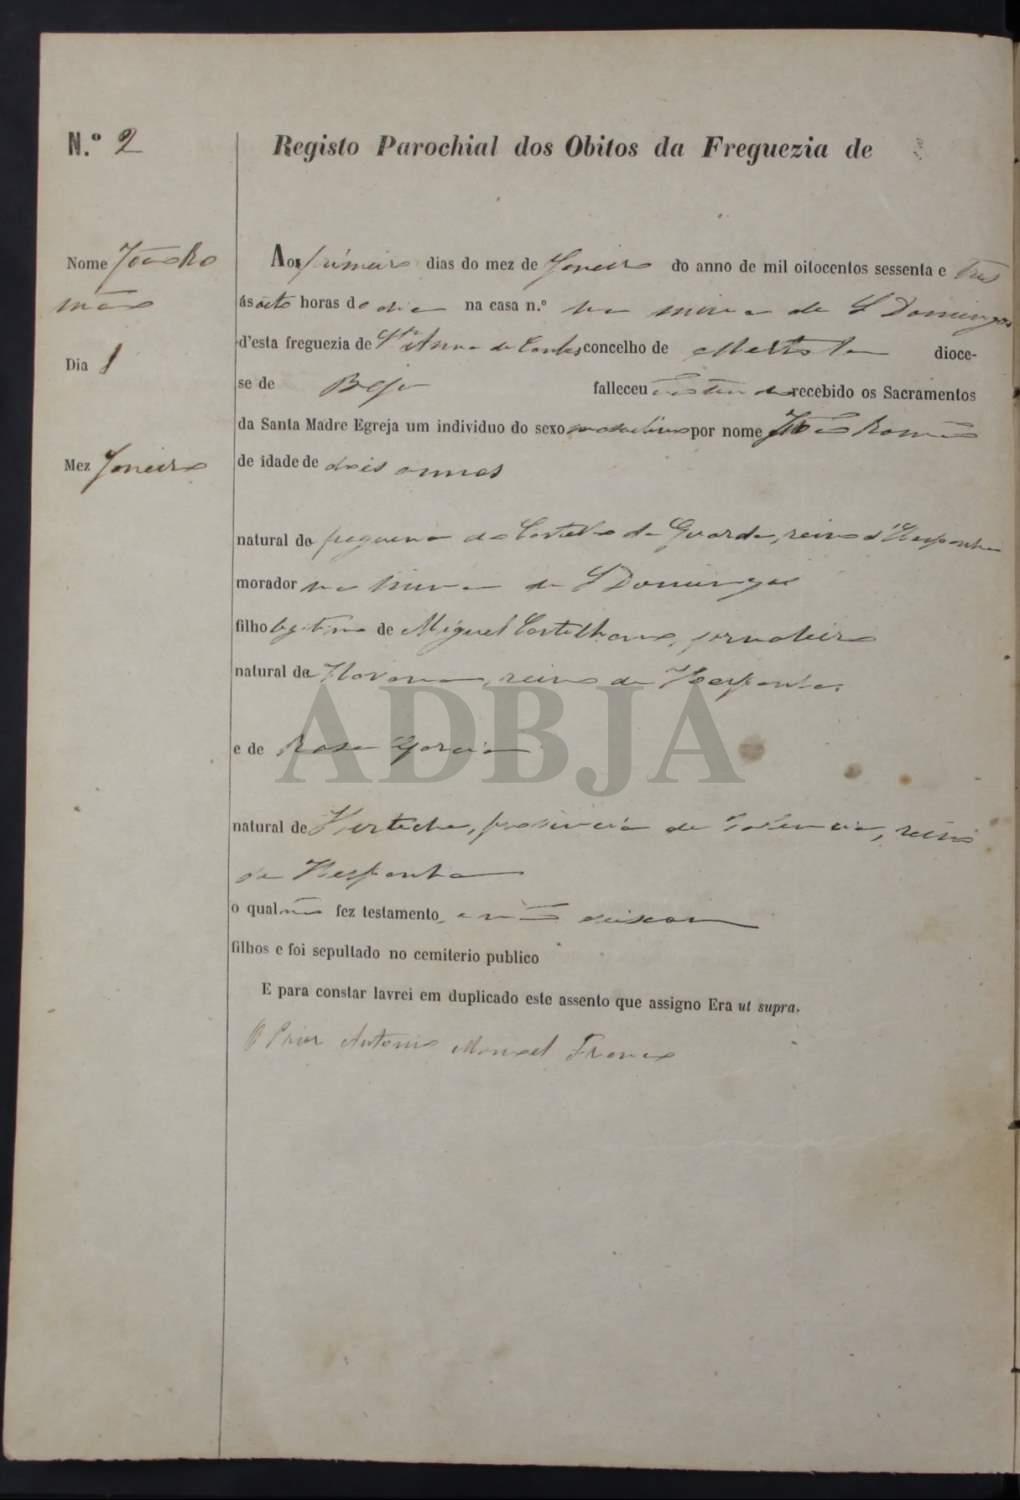 N.º 2
Registo Parochial dos Obitos da Freguezia de
Nome João Ro
mão
Dia 1
Mez Janeiro
Aos primeiro dias do mez de Janeiro do anno de mil oitocentos sessenta e tres
ás oito horas do dia na casa n.º na mina de S Domingos
d'esta freguezia de Stª Anna de Cambas concelho de Mertola dioce-
se de Beja falleceu recebido os Sacramentos
da Santa Madre Egreja um individuo do sexo masculino por nome João Romão
de idade de dois annos
natural do do Castello da Guarda, reino d'Hespanha
morador na mina de S Domingos
filho legitimo de Miguel Castelhano, jornaleiro
natural de Navarra, reino de Hespanha,
e de Rosa Garcia
natural de provincia de reino
de Hespanha
o qual não fez testamento, e não deixou
filhos e foi sepultado no cemiterio publico
E para constar lavrei em duplicado este assento que assigno Era ut supra.
O Prior Antonio Manoel Franco
ADBJA